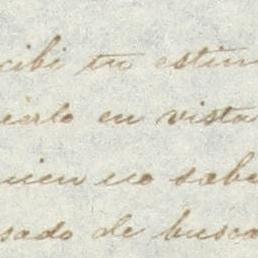 cibi tu estim
ierlo en vista
uien no sabe
sado de busca